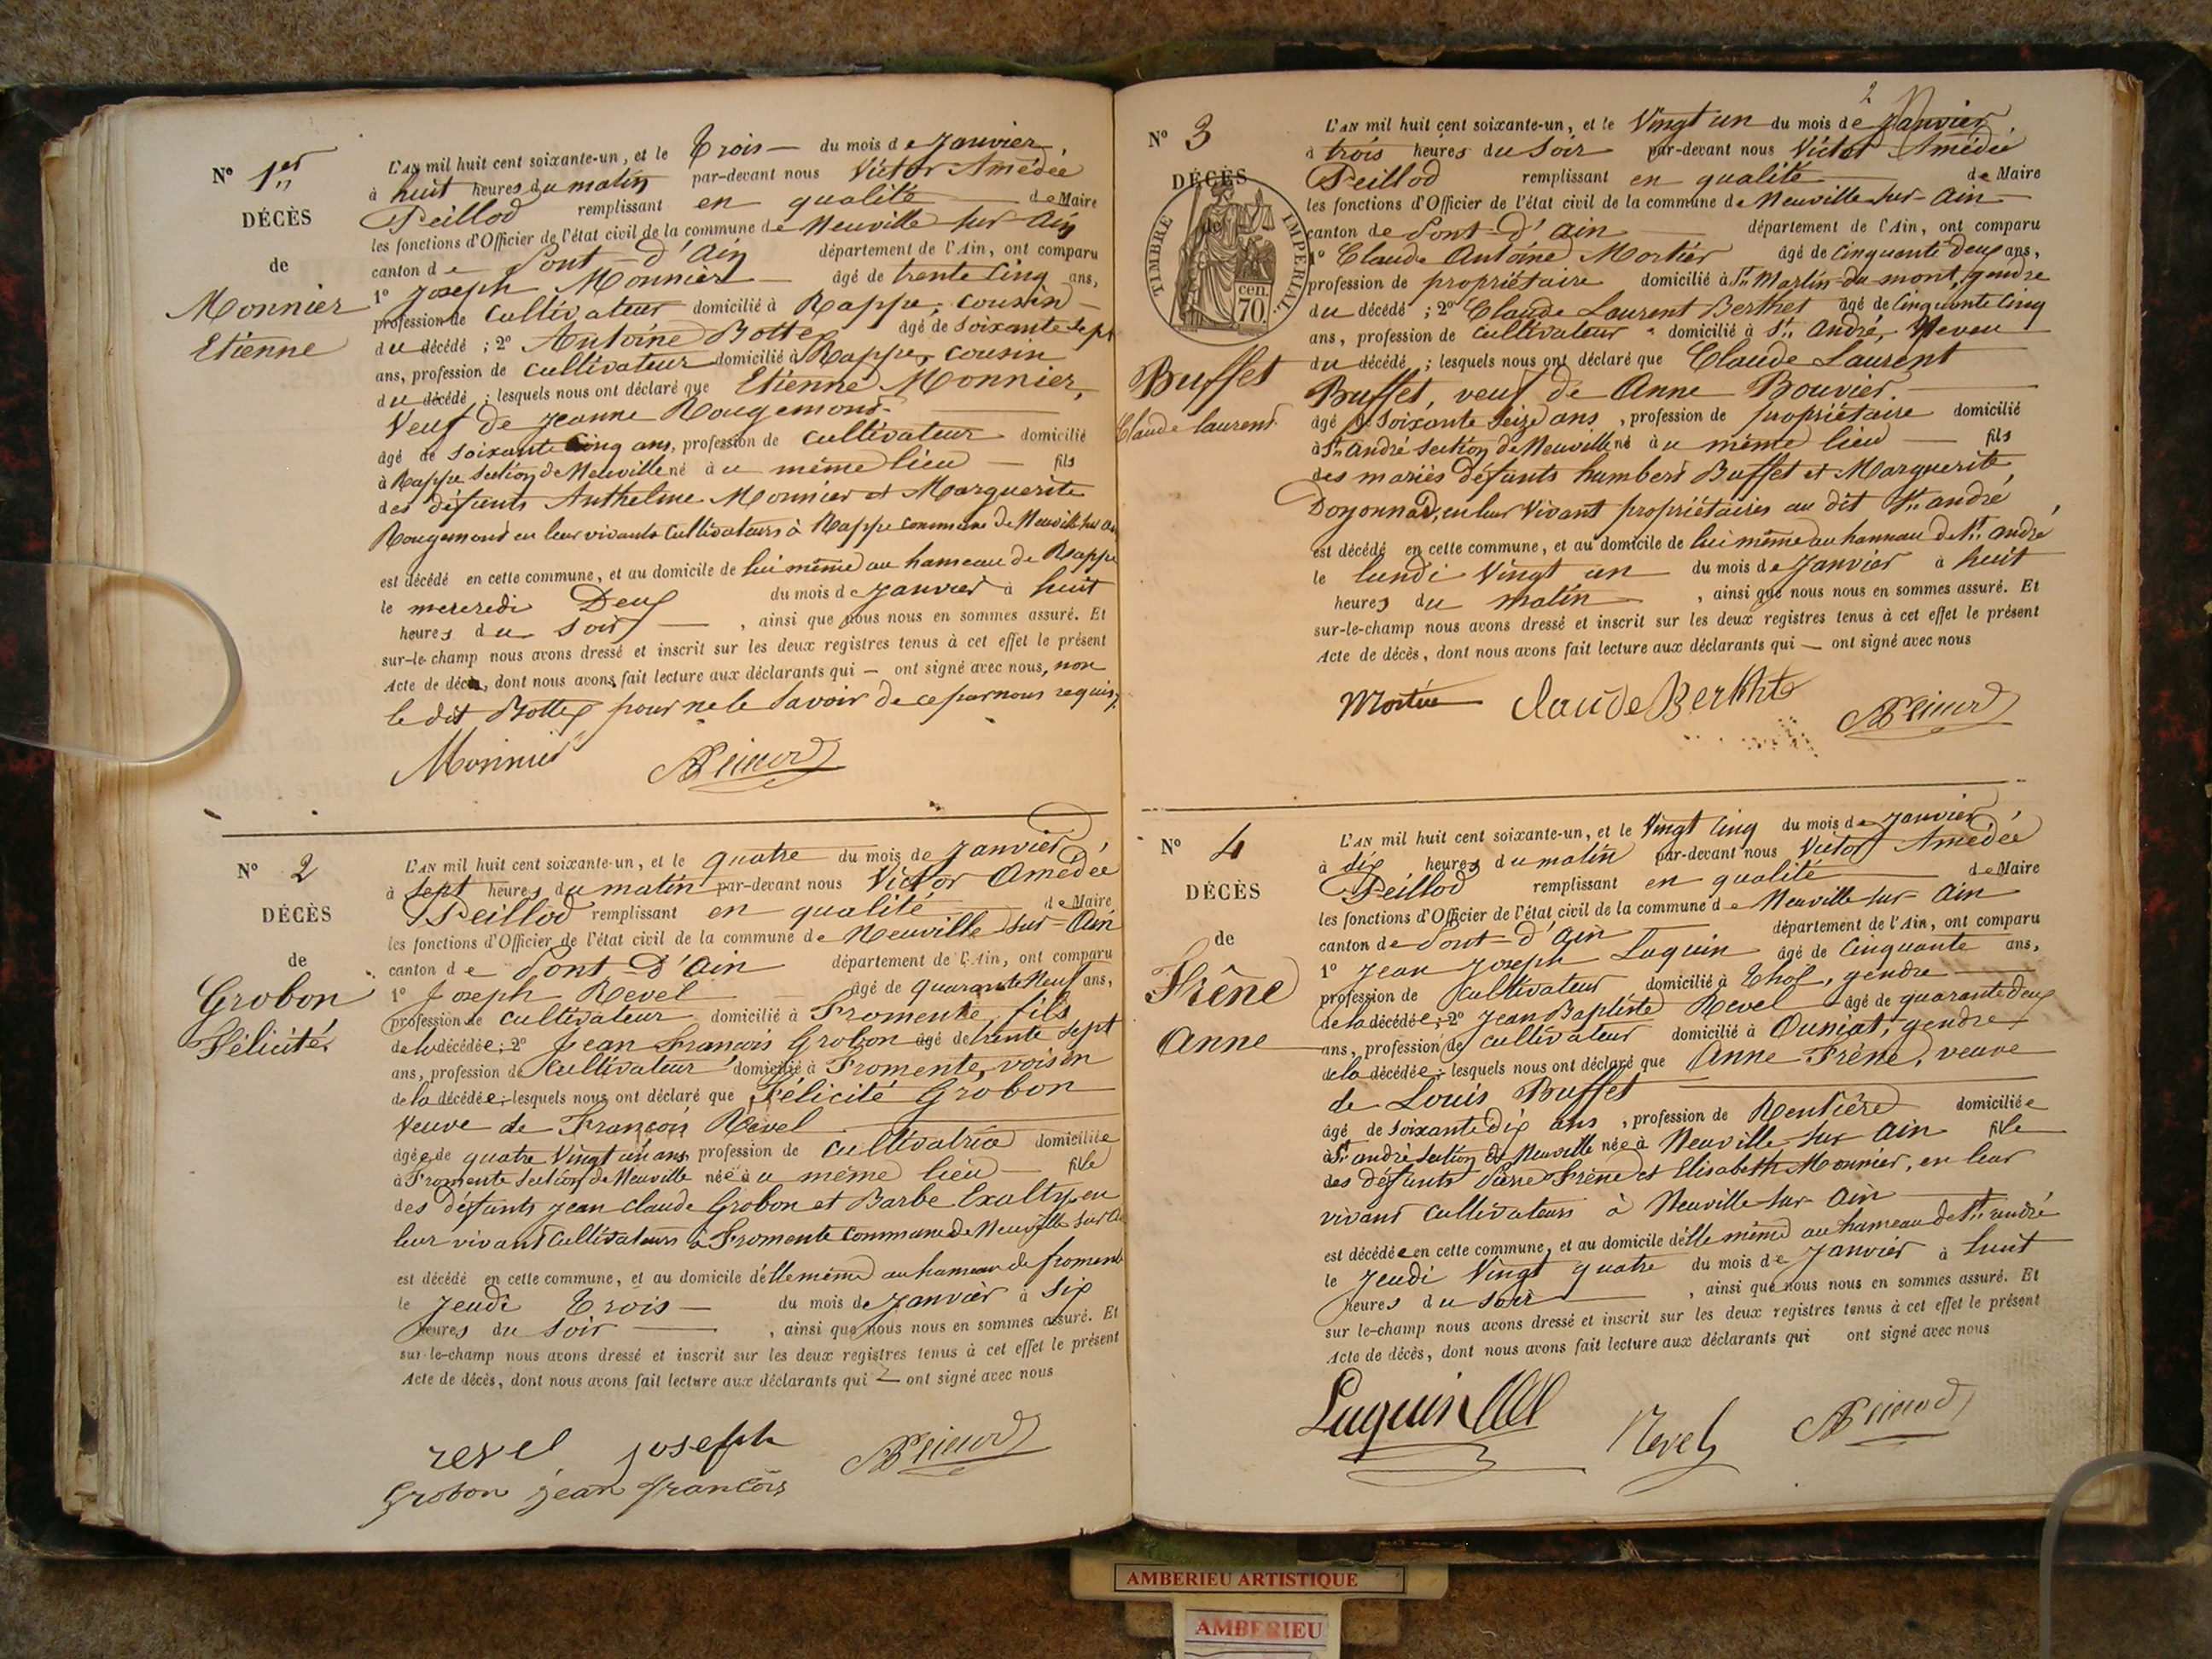 N° 1er
DÉCÈS
de
Monnier
Etienne
L'AN mil huit cent soixante-un, et le Trois — du mois de Janvier,
à huit heures du matin par-devant nous Victor Amédée
Peillod remplissant en qualité — de Maire
les fonctions d'Officier de l'état civil de la commune de Neuville sur Ain
canton de Pont-d'Ain département de l'Ain, ont comparu
1° Joseph Monnier — âgé de trente Cinq ans,
profession de Cultivateur domicilié à Rappe, cousin —
du décédé ; 2° Antoine Bottex âgé de soixante sept
ans, profession de Cultivateur domicilié à Rappe, cousin
du décédé ; lesquels nous ont déclaré que Etienne Monnier,
Veuf de Jeanne Rougemond. —
âgé de soixante Cinq ans, profession de Cultivateur domicilié
à Rappe Section de Neuville né au même lieu — fils
des défunts Anthelme Monnier et Marguerite
Rougemond en leur vivants Cultivateurs à Rappe commune de Neuville sur Ain
est décédé en cette commune, et au domicile de lui même au hameau de Rappe
le mercredi Deux du mois de Janvier à huit
heures du soir —, ainsi que nous nous en sommes assuré. Et
sur-le-champ nous avons dressé et inscrit sur les deux registres tenus à cet effet le présent
Acte de décès, dont nous avons fait lecture aux déclarants qui — ont signé avec nous, non
le dit Bottex pour ne le savoir de ce par nous requis.
Monnier
N° 2
DÉCÈS
de
Grobon
Félicité.
L'AN mil huit cent soixante-un, et le quatre du mois de Janvier
à sept heures du matin par-devant nous Victor Amédée
Peillod remplissant en qualité — de Maire
les fonctions d'Officier de l'état civil de la commune de Neuville sur-Ain
canton de Pont-d'Ain département de l'Ain, ont comparu
1° Joseph Revel âgé de quarante Neuf ans,
profession de cultivateur domicilié à Fromente, fils
de la décédée ; 2° Jean François Grobon âgé de trente sept
ans, profession de Cultivateur domicilié à Fromente, voisin
de la décédée ; lesquels nous ont déclaré que Félicité Grobon
Veuve de François Revel —
âgée de quatre Vingt un ans, profession de Cultivatrice domiciliée
à Fromente Section de Neuville née au même lieu — fille
des défunts Jean Claude Grobon et Barbe en
leur vivant Cultivateurs à Fromente commune de Neuville sur Ain
est décédé en cette commune, et au domicile d'elle même au hameau de fromente
le Jeudi Trois — du mois de Janvier à six
heures du soir —, ainsi que nous nous en sommes assuré. Et
sur-le-champ nous avons dressé et inscrit sur les deux registres tenus à cet effet le présent
Acte de décès, dont nous avons fait lecture aux déclarants qui — ont signé avec nous
revel joseph
Grobon jean françois
2
N° 3
DÉCÈS
de
TIMBRE IMPERIAL
70 cen.
Buffet
Claude laurent.
L'AN mil huit cent soixante-un, et le Vingt un du mois de Janvier,
à trois heures du soir par-devant nous Victor Amédée
Peillod remplissant en qualité — de Maire
les fonctions d'Officier de l'état civil de la commune de Neuville-sur-Ain
canton de Pont-d'Ain — département de l'Ain, ont comparu
1° Claude Antoine Mortier âgé de Cinquante Deux ans,
profession de propriétaire domicilié à St Martin-du-mont, gendre
du décédé ; 2° Claude Laurent Berthet âgé de Cinquante Cinq
ans, profession de Cultivateur domicilié à St. André, Neveu
du décédé ; lesquels nous ont déclaré que Claude Laurent
Buffet, veuf de Anne Bouvier. —
âgé de Soixante Seize ans, profession de propriétaire domicilié
à St André section de Neuville né au même lieu — fils
des mariés défunts humbert Buffet et Marguerite
Doyonnad, en leur Vivant propriétaires au dit St. andré
est décédé en cette commune, et au domicile de lui même au hameau de St. andré
le lundi Vingt un — du mois de Janvier à huit
heures du matin —, ainsi que nous nous en sommes assuré. Et
sur-le-champ nous avons dressé et inscrit sur les deux registres tenus à cet effet le présent
Acte de décès, dont nous avons fait lecture aux déclarants qui — ont signé avec nous
Mortier Claude Berthet
N° 4
DÉCÈS
de
Frêne
Anne
L'AN mil huit cent soixante-un, et le Vingt Cinq du mois de Janvier
à dix heures du matin par-devant nous Victor Amédée
Peillod remplissant en qualité — de Maire
les fonctions d'Officier de l'état civil de la commune de Neuville-sur-Ain
canton de Pont-d'Ain — département de l'Ain, ont comparu
1° Jean Joseph Luquin âgé de Cinquante ans,
profession de Cultivateur domicilié à Thol, gendre —
de la décédée ; 2° Jean Baptiste Revel âgé de quarante deux
ans, profession de Cultivateur domicilié à Oussiat, gendre
de la décédée ; lesquels nous ont déclaré que Anne Frêne, veuve
de Louis Buffet —
âgé de Soixante Dix ans, profession de Rentière domiciliée
à St andré section de Neuville née à Neuville-sur Ain fille
des défunts Pierre Frêne et Elisabeth Monnier, en leur
vivant Cultivateurs à Neuville-sur Ain —
est décédée en cette commune, et au domicile d'elle même au hameau de St. andré
le Jeudi Vingt quatre du mois de Janvier à huit
heures du soir —, ainsi que nous nous en sommes assuré. Et
sur le-champ nous avons dressé et inscrit sur les deux registres tenus à cet effet le présent
Acte de décès, dont nous avons fait lecture aux déclarants qui ont signé avec nous
Luquin Revel
AMBERIEU ARTISTIQUE
AMBERIEU